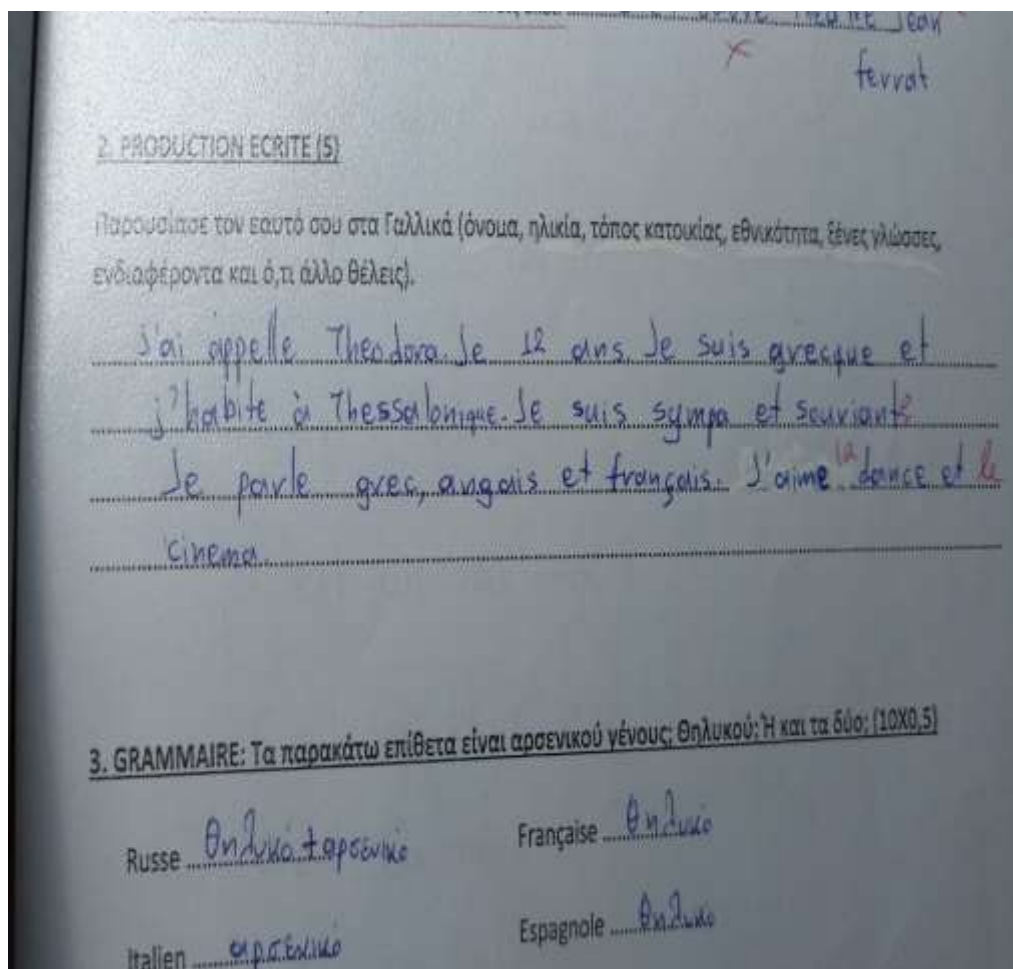 Jean
ferrat
2. PRODUCTION ECRITE (5)
Παρουσίασε τον εαυτό σου στα Γαλλικά (όνομα, ηλικία, τόπος κατοικίας, εθνικότητα, ξένες γλώσσες,
ενδιαφέροντα και ό,τι άλλο θέλεις).
J'ai appelle Theodora. Je 12 ans. Je suis grecque et
j'habite à Thessalonique. Je suis sympa et souriante
Je parle grec, angais et français. J'aime la dance et le
cinema
3. GRAMMAIRE: Τα παρακάτω επίθετα είναι αρσενικού γένους; Θηλυκού; Ή και τα δύο; (10X0,5)
Russe θηλυκό + αρσενικό Française θηλυκό
Italien αρσενικό Espagnole θηλυκό